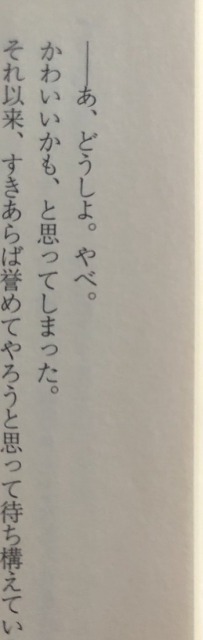 ――あ、どうしよ。やべ。
かわいいかも、と思ってしまった。
それ以来、すきあらば誉めてやろうと思って待ち構えてい